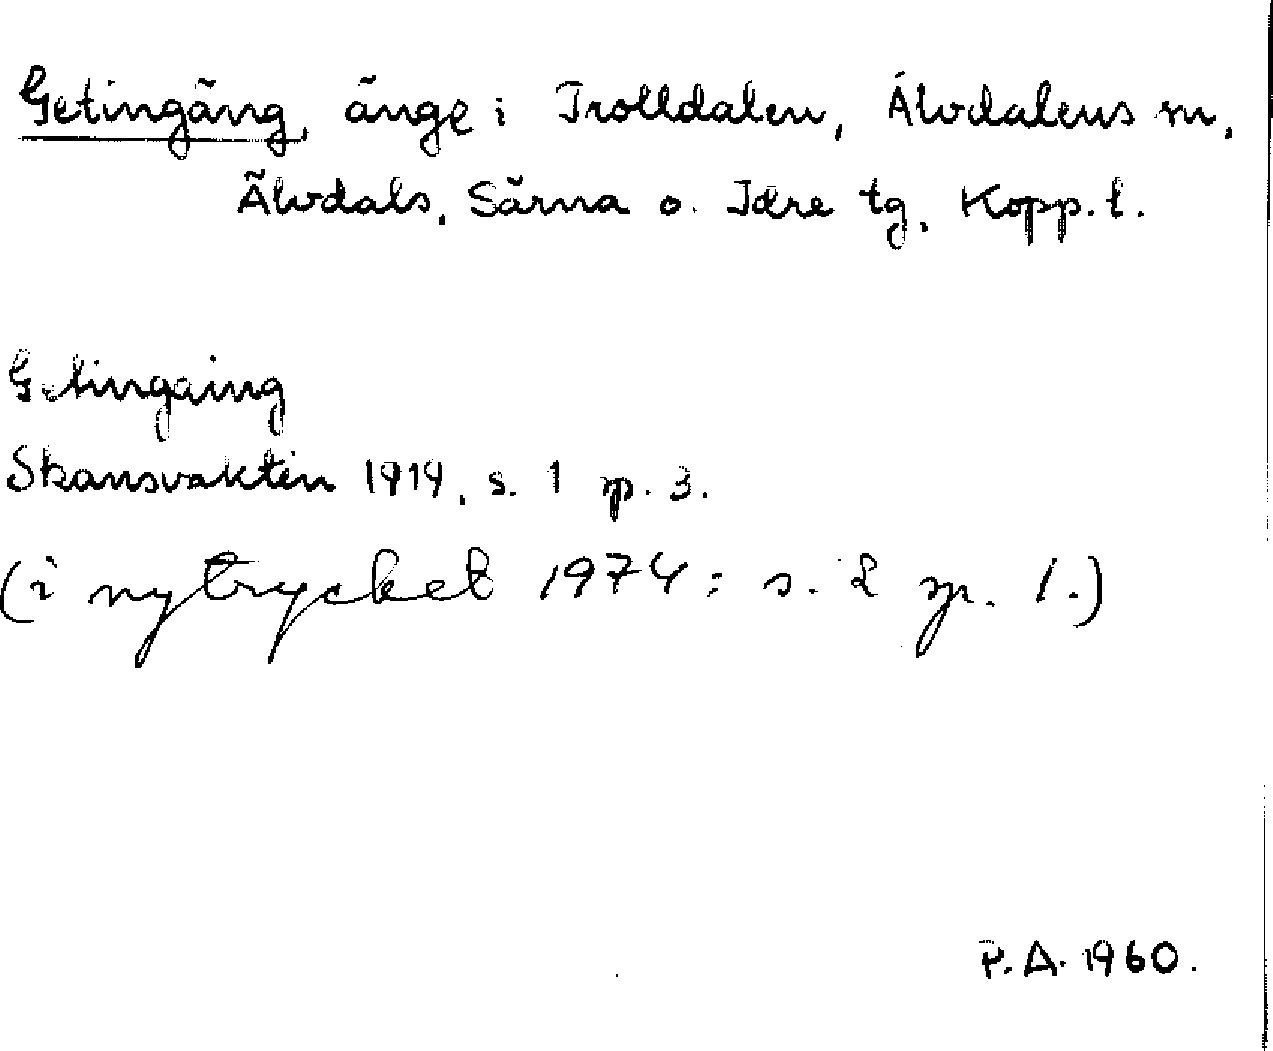 Getingäng, änge i Trolldalen, Älvdalens sn,
Älvdals, Särna o. Idre tg, Kopp. l.
Getingaing
Skansvakten 1919, s. 1 sp. 3.
(i nytrycket 1974: s. 2 sp. 1.)
P.A. 1960.